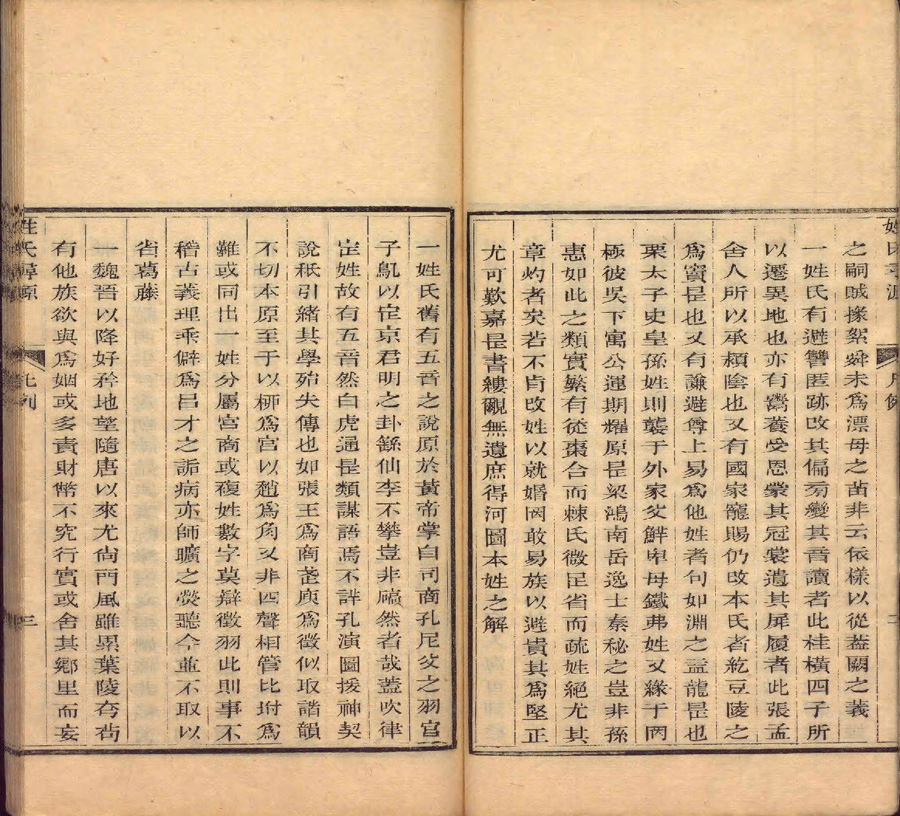 之嗣賊揉絮舜未爲漂母之苗非云依樣以從蓋闕之義
一姓氏有避讐匿跡改其偏旁變其音讀者此桂橫四子所
以遷異地也亦有鬻養受恩蒙其冠裳遺其屏履者此張孟
舍人所以承頖陰也又有國家寵賜仍改本氏者紇豆陵之
爲竇是也又有謙避尊上易爲他姓者句如淵之益龍是也
栗太子史皇孫姓則襲于外家父鮮卑母鐵弗姓又緣于兩
極彼吳下寓公運期燿原是梁鴻南岳逸士秦秘之豈非孫
惠如此之類實繁有從棗合而棘氏微疋省而疏姓絕尤其
章灼者矣若不肯改姓以就婚罔敢易族以避貴其爲堅正
尤可歎嘉是書縷覼無遺庶得河圖本姓之解
一姓氏舊有五音之說原於黃帝掌白司商孔尼父之羽宮
子氣以定京君明之卦繇仙李不攀豈非碻然者哉蓋吹律
定姓故有五音然白虎通是類謀語焉不詳孔演圖援神契
說秖引緒其學殆失傳也如張王爲商茋庾爲徵似取諧韻
不切本原至于以柳爲宮以趙爲角又非四聲相管比坿爲
難或同出一姓分屬宮商或複姓數字莫辯徵羽此則事不
稽古義理乖僻爲呂才之詬病亦師曠之熒聽今並不取以
省葛藤
一魏晉以降好矜地望隨唐以來尤尙門風雖累葉陵夸茍
有他族欲與爲姻或多責財幣不究行實或舍其鄉里而妄
姓氏尋源
凡例
三